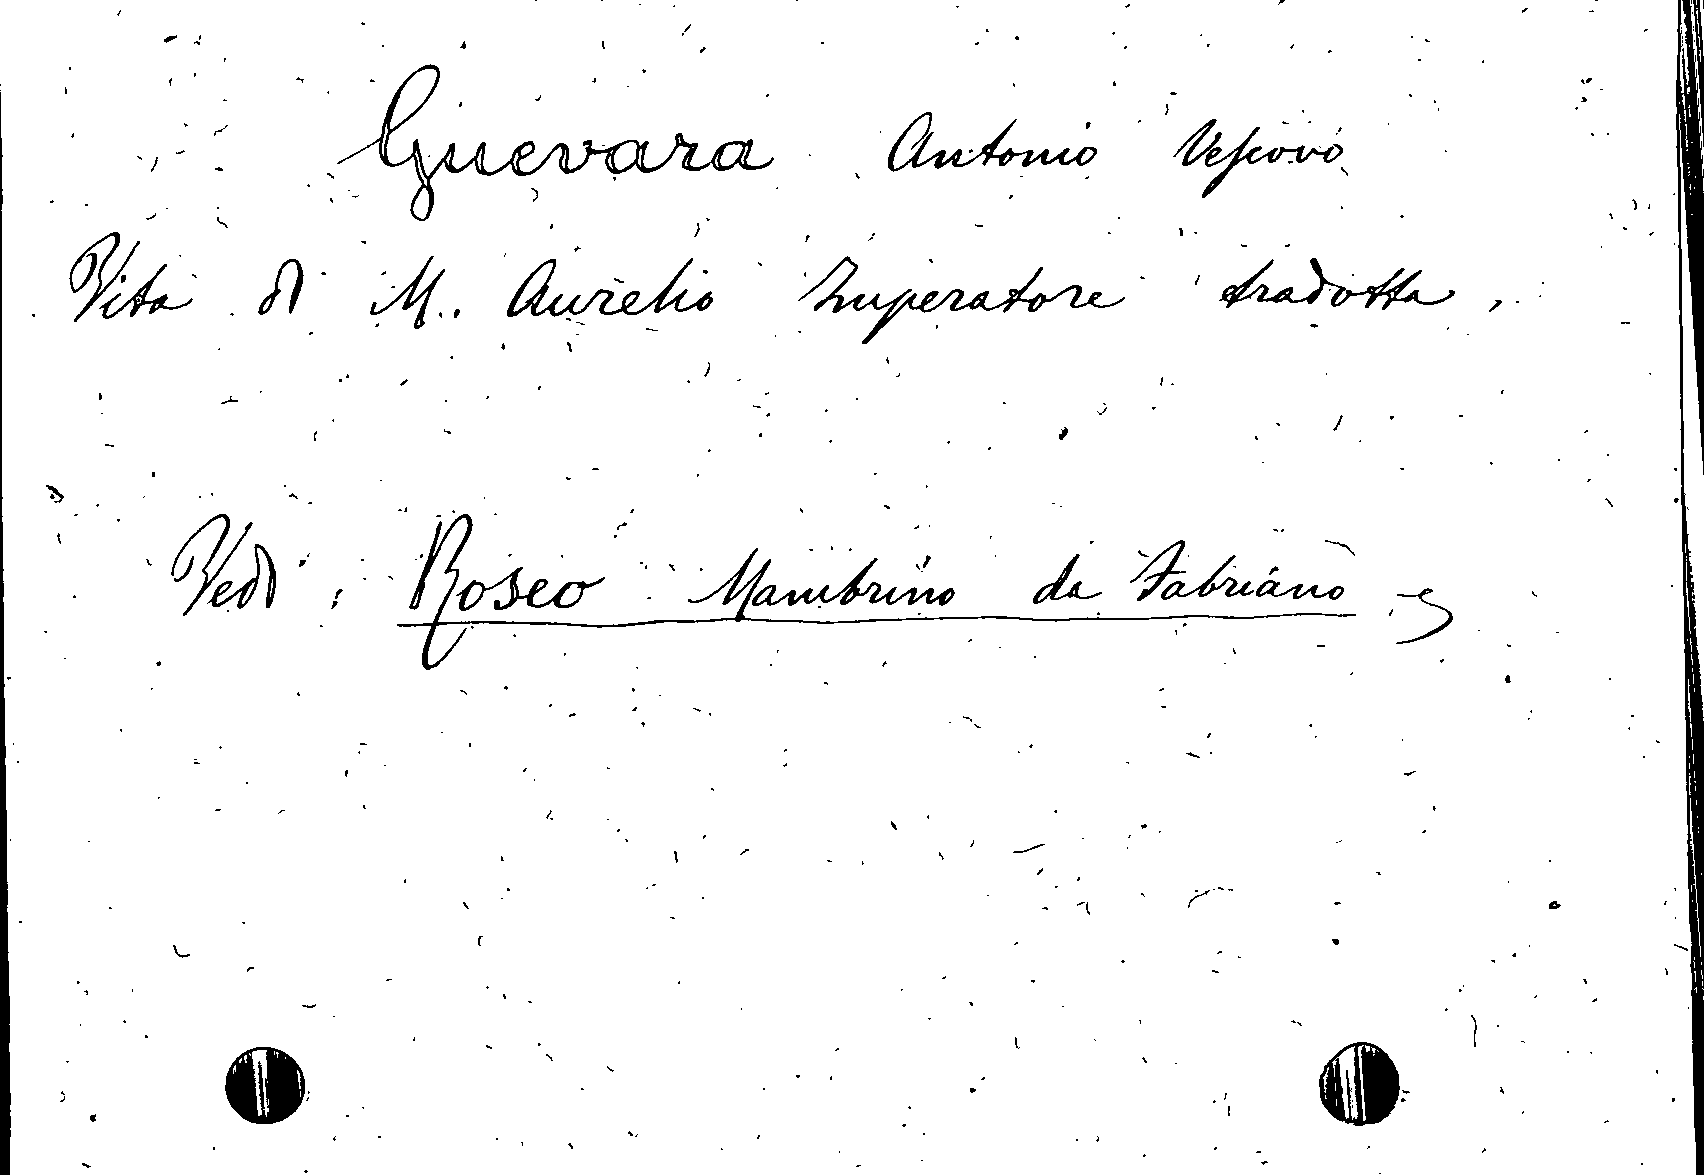 Guevara Antonio Vescovo
Vita di M. Aurelio Imperatore tradotta.
Vedi: Roseo Mambrino da Fabriano